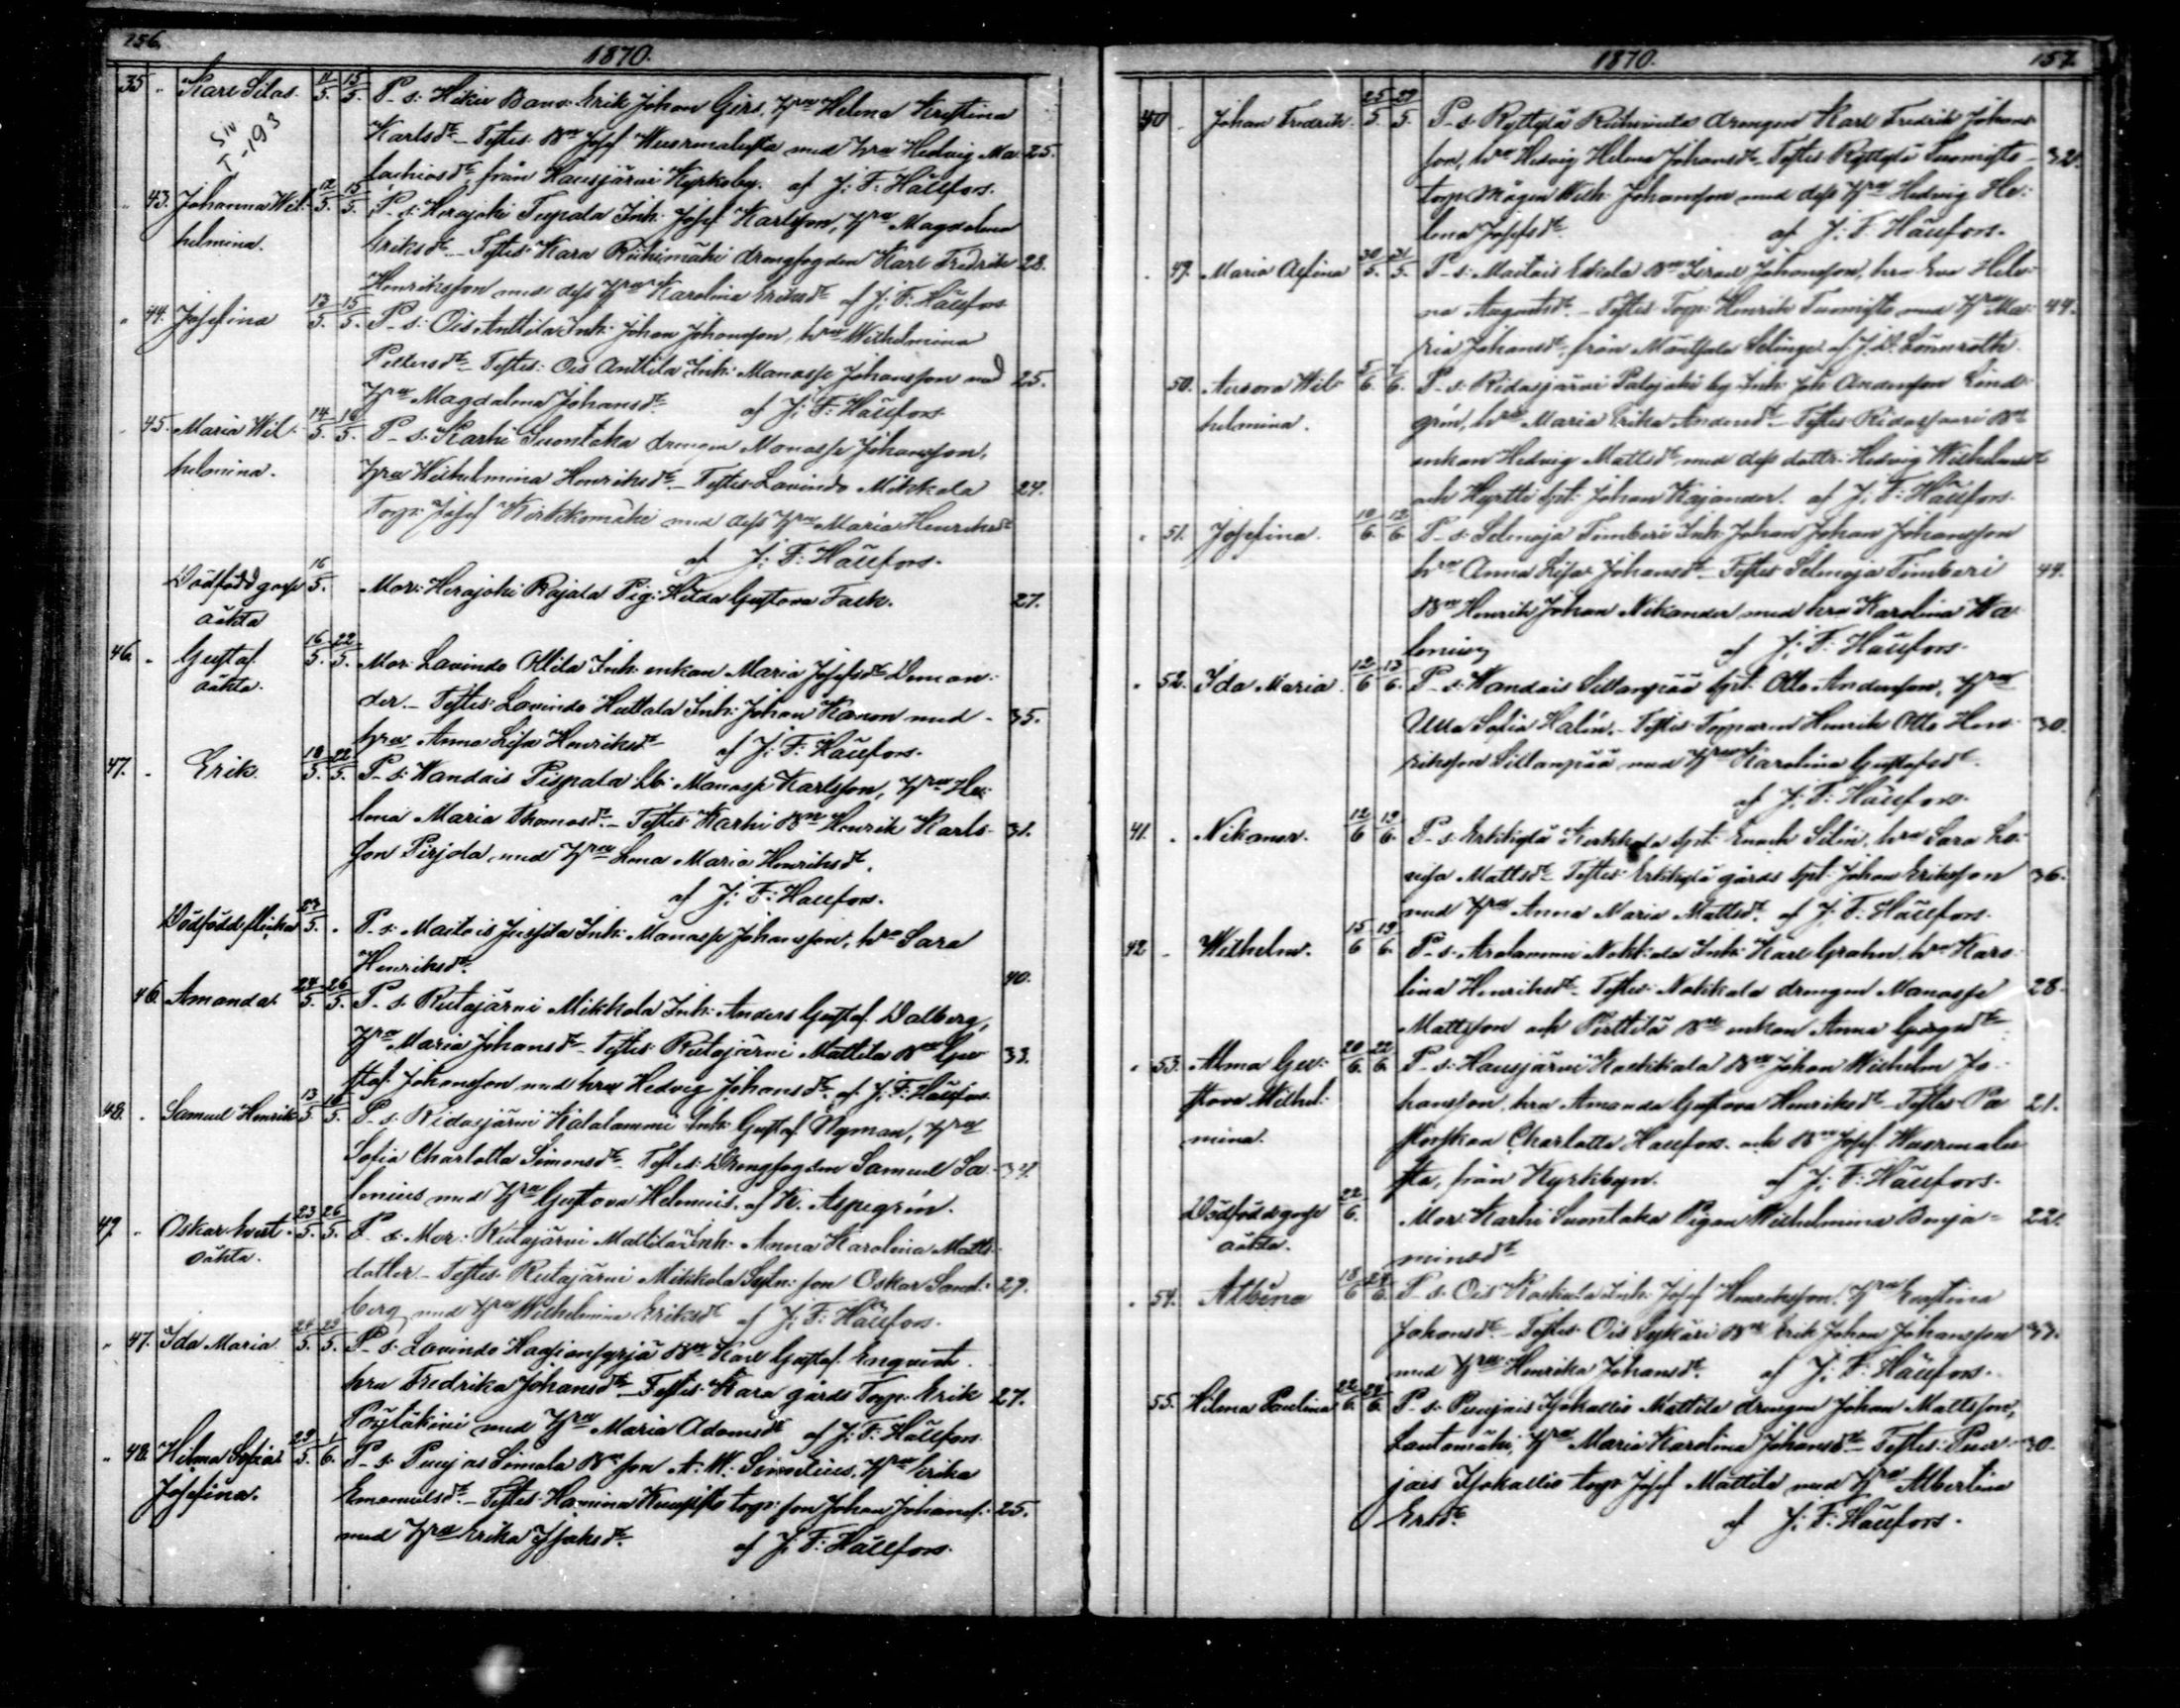 156.
1870.
35 . Karl Silas. 11/5. 15/5. P-s: Hikiä Bond: Erik Johan Girs, hru Helena Kristina
Karlsdr - Testes: Bn Josef med hru Hedvig Ma- 25.
lachiasdr, från Hausjärvi Kyrkoby. af J: F: Hällfors.
Siv I-193
" 43. Johanna Wil- 12/5. 15/5. P-s: Herajoki Teupala Inh: Josef Karlsson, hru Magdalena
helmina. Eriksdr - Testes: Kara Riihimäki drengfogden Karl Fredrik 28.
Henriksson med dess hru Karolina Eriksdr af J: F: Hällfors
" 44. Josefina 13/5. 15/5. P-s: Ois Anttila Inh: Johan Johansson, hru Wilhelmina
Pettersdr - Testes: Ois Anttila Inh: Manasse Johansson med 25.
hru Magdalena Johansdr. af J: F: Hällfors.
" 45. Maria Wil- 14/5. 16/5. P-s: Karhi Suontaka drengen Manasse Johansson,
helmina. hru Wilhelmina Henriksdr. - Testes: Lavinto Mikkola 24.
Torp: Josef Kirkkomäki med dess hru Maria Henriksdr
af J: F: Hällfors.
Dödfödd gosse 16/5. Mor: Herajoki Rajala Pig: Hilda Gustava Fack. 27.
oäkta
46. " Gustaf 16/5. 22/5. Mor: Lavinto Ollila Inh: enkan Maria Josefsdr Doman-
oäkta. der. - Testes: Lavinto Huttala Inh: Johan Kanon med - 35.
hru Anna Lisa Henriksdr af J: F: Hällfors.
47. " Erik. 18/5. 22/5. P-s: Wandais Pispala Lb: Manasse Karlsson, hru He-
lena Maria Thomasdr. - Testes: Karhi Bn Henrik Karls- 31.
son Pirjola, med hru Lena Maria Henriksdr.
af J: F: Hällfors.
Dödfödd flicka 23/5. . P-s: Maitois Jussila Inh: Manasse Johansson, hru Sara
Henriksdr. 40.
46. Amanda. 24/5. 26/5. P-s: Rutajärvi Mikkola Inh: Anders Gustaf Dalberg,
hru Maria Johansdr - Testes: Rutajärvi Mattila Bn Gu- 33.
staf Johansson med hru Hedvig Johansdr. af J: F: Hällfors
48. . Samuel Henrik 13/5 18/5. P-s: Ridasjärvi Kalalammi Inh: Gustaf Nyman, hru
Sofia Charlotta Simonsdr - Testes: Drengfogden Samuel Sa- 34.
lenius med hru Gustava Helenius. af K. Aspegrén.
49. " Oskar hvit- 23/5. 26/5. P-s: Mor: Rutajärvi Mattila Inh: Anna Karolina Matts-
oäkta. dotter - Testes: Rutajärvi Mikkola Sytn: son Oskar Sand- 29.
berg med hru Wilhelmina Eriksdr af J: F: Hällfors.
" 47. Ida Maria 24/5. 29/5. P-s: Lavinto Bn Karl Gustaf Enqvist
hru Fredrika Johansdr. - Testes: Kara gårds Torp: Erik 27.
med hru Maria Adamsdr af J: F: Hällfors
" 48. Hilma Sofia 29/5. 1/6. P-s: Puujas Simola Bn son A. W. Simelius, hru Erika
Josefina. Emanuelsdr. - Testes: Hamina Kuusisto torp: son Johan Johanss: 25.
med hru Erika Isaksdr. af J: F: Hällfors.
1870.
157.
40 . Johan Fredrik. 25/5. 29/5. P-s: Ryttylä drengen Karl Fredrik Johans-
son, hru Hedvig Helena Johansdr - Testes: Ryttylä Tuomisto- 32.
torp: mågen Wilh: Johansson med dess hru Hedvig He-
lena Josefsdr. af J: F: Hällfors.
. 49. Maria Alfina 30/5. 31/5. P-s: Maitois Eskola Bn Israel Johansson, hru Eva Hele-
na Augustdr. - Testes: Torp: Henrik Tuomisto med hru Ma- 44.
ria Johansdr, från Mäntsälä Sälinge. af J. D. Lönnroth.
50. Aurora Wil- 5/6. 7/6. P-s: Ridasjärvi Palojoki by Inh: Joh: Andersson Lind-
helmina. grén, hru Maria Erika Andersdr - Testes: Ridassaari Bn
enkan Hedvig Mattsdr med dess dotter Hedvig Wilhelmsdr
och Hyrtti Spt: Johan Kajander. af J: F: Hällfors.
" 51. Josefina. 10/6. 12/6. P-s: Selmaja Timberi Inh: Johan Johan Johansson
hru Anna Lisa Johansdr - Testes: Selmaja Timberi 44.
Bn Henrik Johan Nikander med hru Karolina Wa-
lenius af J: F: Hällfors.
" 52. Ida Maria. 12/6 13/6. P-s: Wandais Sillanpää Spt: Otto Andersson, hru
Ulla Sofia Halin. - Testes: Torparen Henrik Otto Hen- 30.
riksson Sillanpää med hru Karolina Gustafsdr.
af J: F: Hällfors.
41. . Nikanor. 12/6 19/6. P-s: Erkkylä Kerkkola Spt: Enoch Silin, hru Sara Lo-
visa Mattsdr - Testes: Erkkylä gårds Spt: Johan Eriksson 36.
med hru Anna Maria Mattsdr. af J: F: Hällfors.
42 . Wilhelm. 15/6 19/6. P-s: Arolammi Nokkala Inh: Karl Grahn, hru Karo-
lina Henriksdr - Testes: Nokkala drengen Manasse 28.
Mattsson och Pirttilä Bn enkan Anna Georgsdr
" 53. Alma Gu- 20/6. 22/6. P-s: Hausjärvi Kaekkala Bn Johan Wilhelm Jo-
stava Wilhel- hansson, hru Amanda Gustava Henriksdr - Testes: Pa- 21.
mina. storskan Charlotta Hällfors. och Bn Josef
sta, från Kyrkbyn. af J: F: Hällfors.
Dödfödd gosse 22/6. Mor: Karhi Suontaka Pigan Wilhelmina Benja- 22.
oäkta. minsdr
" 54. Albina 18/6 24/6. P-s: Ois Inh: Josef Henriksson, hru Kristina
Johansdr. - Testes: Ois Sykäri Bn Erik Johan Johansson 33.
med hru Henrika Johansdr. af J: F: Hällfors.
55. Hilma Paulina 22/6. 24/6. P-s: Puujais Isokallio Mattila drengen Johan Mattsson,
Lautamäki, hru Maria Karolina Johansdr - Testes: Puu- 30.
jais Isokallio torp: Josef Mattila med hru Albertina
Ersdr. af J: F: Hällfors.